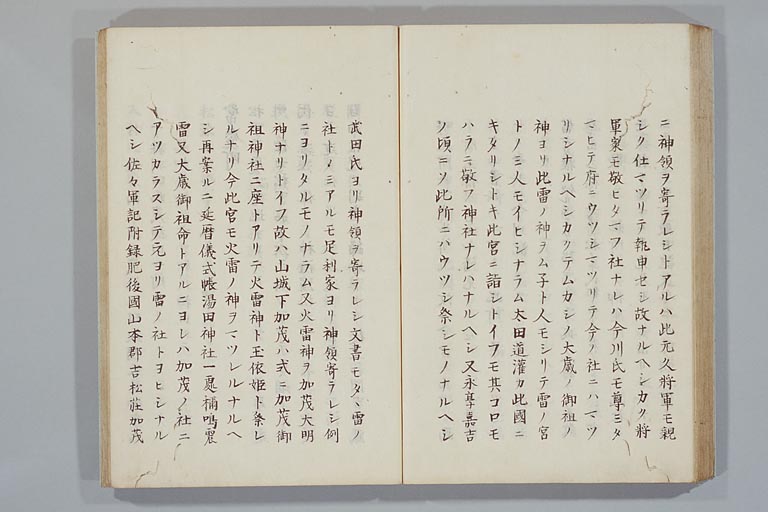 ニ神領ヲ寄ラレシトアルハ此元久將軍モ親
シク仕マツリテ執申セシ故ナルヘシカク將
軍衆モ敬ヒタマフ社ナレハ今川氏モ尊ミタ
マヒテ府ニウツシマツリテ今ノ社ニハマツ
リシナルヘシカクテムカシノ大歳ノ御祖ノ
神ヨリ此雷ノ神ヲム子ト人モシリテ雷ノ宮
トノミ人モイヒシナラム太田道灌カ此國ニ
キタリシトキ此宮ニ詣シトイフモ其コロモ
ハラニ敬フ神社ナレハナルヘシ又永享嘉吉
ノ頃ニソ此所ニハウツシ祭シモノナルヘシ
武田氏ヨリ神領ヲ寄ラレシ文書モタヽ雷ノ
社トノミアルモ足利家ヨリ神領寄ラレシ例
ニヨリタルモノナラム又火雷神ヲ加茂大明
神ナリトイフ故ハ山城下加茂ハ式ニ加茂御
祖神社二座トアリテ火雷神ト玉依姫ト祭レ
ルナリ今此宮モ火雷ノ神ヲマツレルナルヘ
シ再案ルニ延暦儀式帳湯田神社一處稱鳴震
雷又大歳御祖命トアルニヨレハ加茂ノ社ニ
アツカラスシテ元ヨリ雷ノ社トヨヒシナル
ヘシ佐々軍記附録肥後國山本郡吉松莊加茂